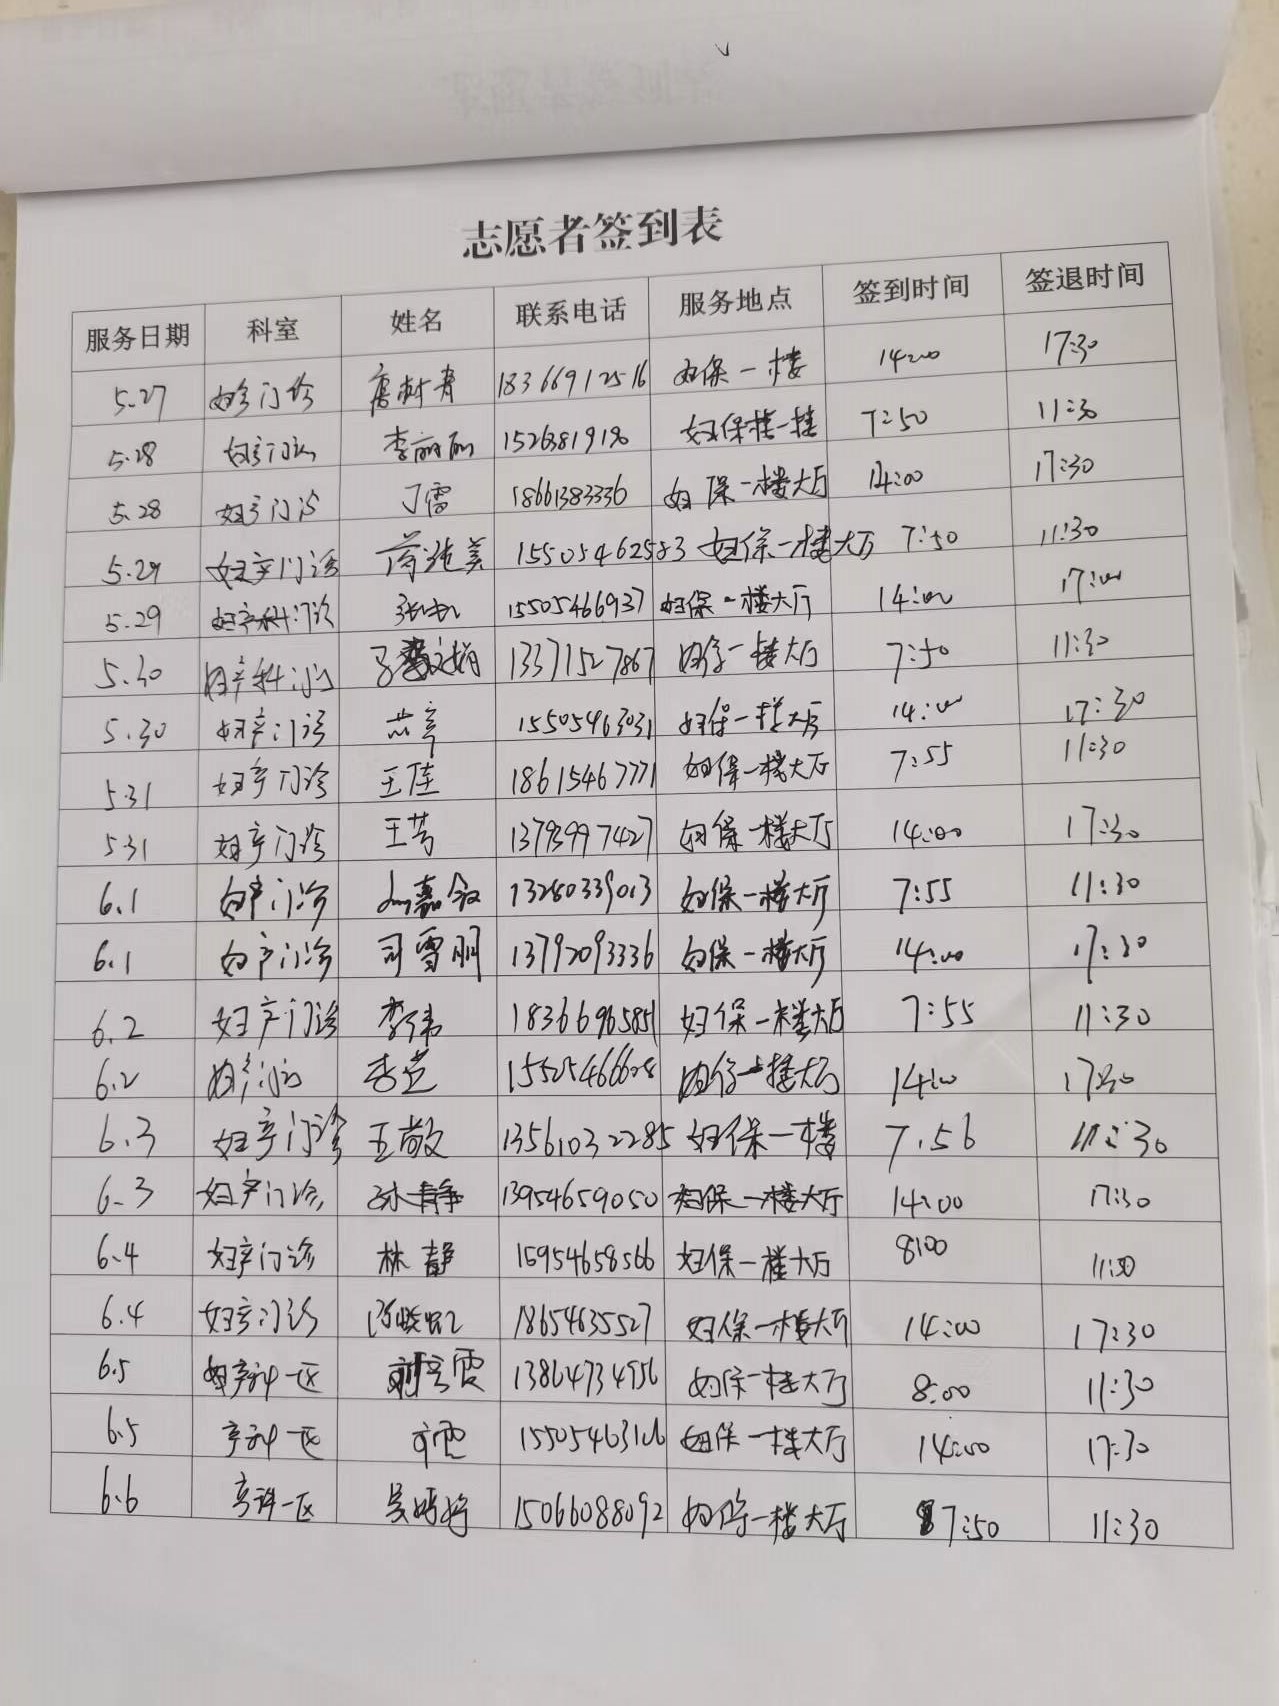 志愿者签到表
服务日期 科室 姓名 联系电话 服务地点 签到时间 签退时间
5.27 妇产门诊 18366912516 妇保一楼 14:00 17:30
5.28 妇产门诊 李丽丽 1526381918 妇保楼一楼 7:50 11:30
5.28 妇产门诊 丁雪 18661383336 妇保一楼大厅 14:00 17:30
5.29 妇产门诊 15505462583 妇保一楼大厅 7:50 11:30
5.29 妇产科门诊 15505466937 妇保一楼大厅 14:00 17:00
5.30 妇产科门诊 13371527867 妇保一楼大厅 7:50 11:30
5.30 妇产门诊 15505463031 妇保一楼大厅 14:00 17:30
5.31 妇产门诊 王佳 18615467771 妇保一楼大厅 7:55 11:30
5.31 妇产门诊 王芳 13793997427 妇保一楼大厅 14:00 17:30
6.1 妇产门诊 13280339013 妇保一楼大厅 7:55 11:30
6.1 妇产门诊 司雪朋 13792093336 妇保一楼大厅 14:00 17:30
6.2 妇产门诊 李伟 18366965851 妇保一楼大厅 7:55 11:30
6.2 妇产门诊 妇保一楼大厅 14:00 17:30
6.3 妇产门诊 王敬 13561032285 妇保一楼 7.56 11:30
6.3 妇产门诊 孙静 13954659050 妇保一楼大厅 14:00 17:30
6.4 妇产门诊 林静 15954658566 妇保一楼大厅 8:00 11:30
6.4 妇产门诊 18654635527 妇保一楼大厅 14:00 17:30
6.5 妇产科一区 13864734956 妇保一楼大厅 8:00 11:30
6.5 产科一区 15505463106 妇保一楼大厅 14:00 17:30
6.6 产科一区 15066088092 妇保一楼大厅 7:50 11:30